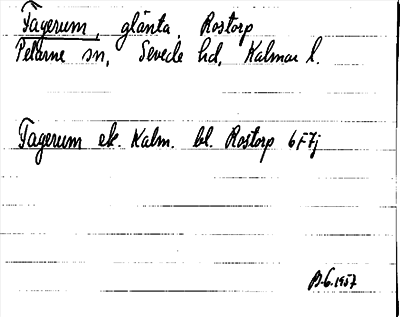 Fagerum, glänta, Rostorp
Pelarne sn, Sevede hd, Kalmar l.
Fagerum ek. Kalm. bl. Rostorp 6F7j
B.G. 1957